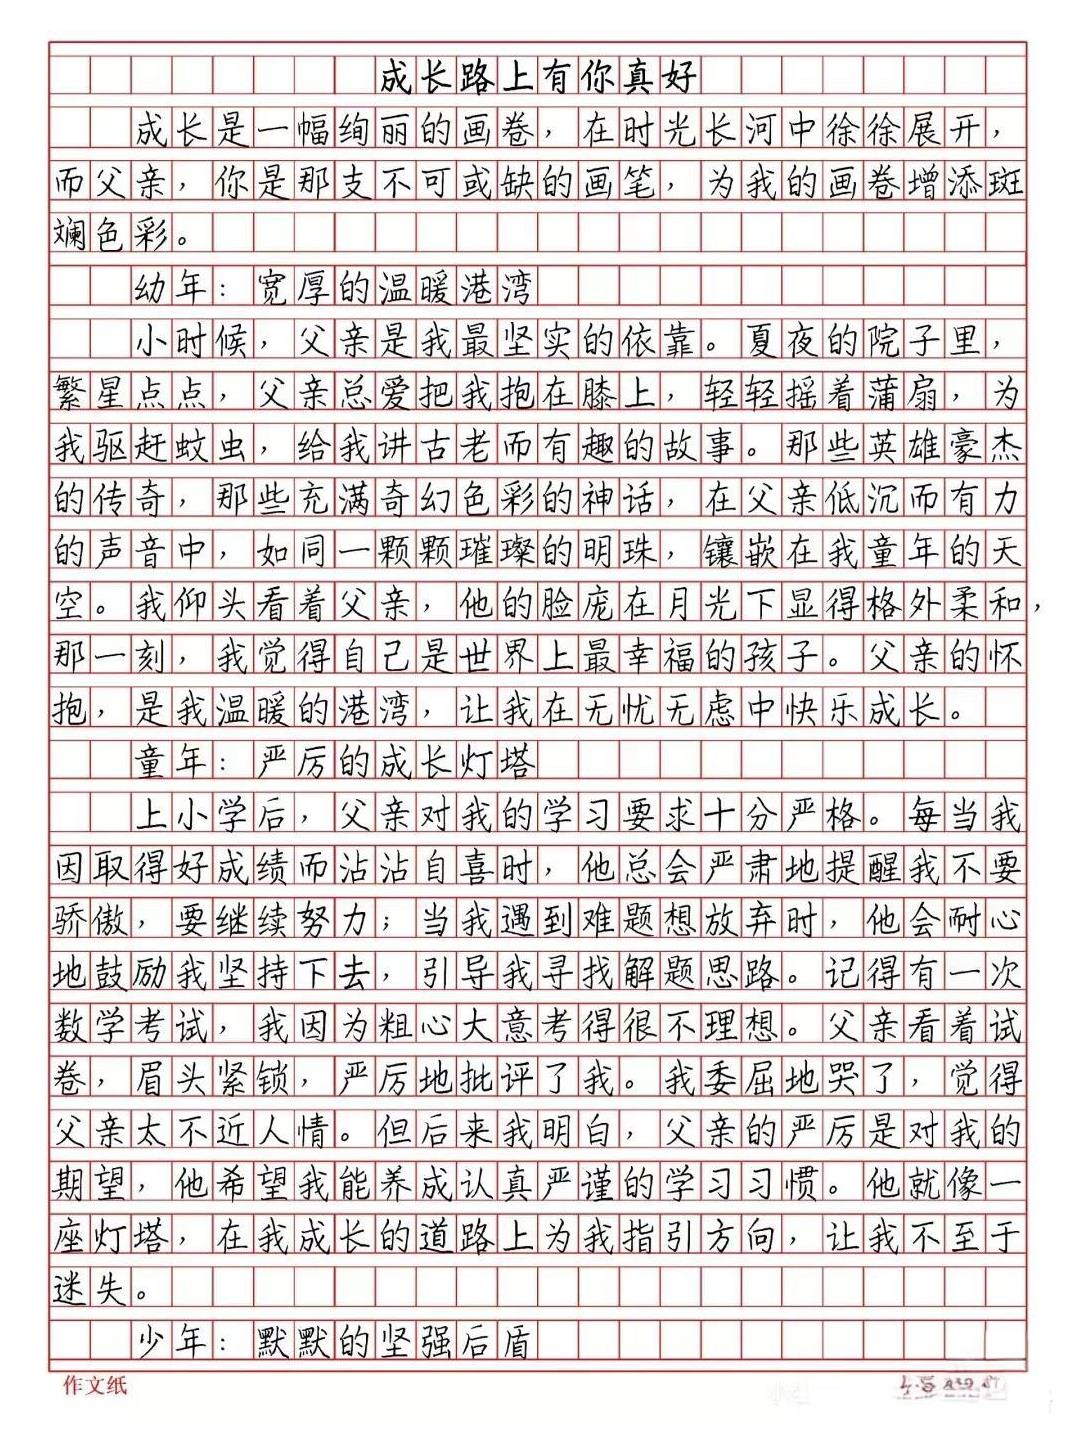 成长路上有你真好
成长是一幅绚丽的画卷，在时光长河中徐徐展开，
而父亲，你是那支不可或缺的画笔，为我的画卷增添斑
斓色彩。
幼年：宽厚的温暖港湾
小时候，父亲是我最坚实的依靠。夏夜的院子里，
繁星点点，父亲总爱把我抱在膝上，轻轻摇着蒲扇，为
我驱赶蚊虫，给我讲古老而有趣的故事。那些英雄豪杰
的传奇，那些充满奇幻色彩的神话，在父亲低沉而有力
的声音中，如同一颗颗璀璨的明珠，镶嵌在我童年的天
空。我仰头看着父亲，他的脸庞在月光下显得格外柔和，
那一刻，我觉得自己是世界上最幸福的孩子。父亲的怀
抱，是我温暖的港湾，让我在无忧无虑中快乐成长。
童年：严厉的成长灯塔
上小学后，父亲对我的学习要求十分严格。每当我
因取得好成绩而沾沾自喜时，他总会严肃地提醒我不要
骄傲，要继续努力；当我遇到难题想放弃时，他会耐心
地鼓励我坚持下去，引导我寻找解题思路。记得有一次
数学考试，我因为粗心大意考得很不理想。父亲看着试
卷，眉头紧锁，严厉地批评了我。我委屈地哭了，觉得
父亲太不近人情。但后来我明白，父亲的严厉是对我的
期望，他希望我能养成认真严谨的学习习惯。他就像一
座灯塔，在我成长的道路上为我指引方向，让我不至于
迷失。
少年：默默的坚强后盾
作文纸